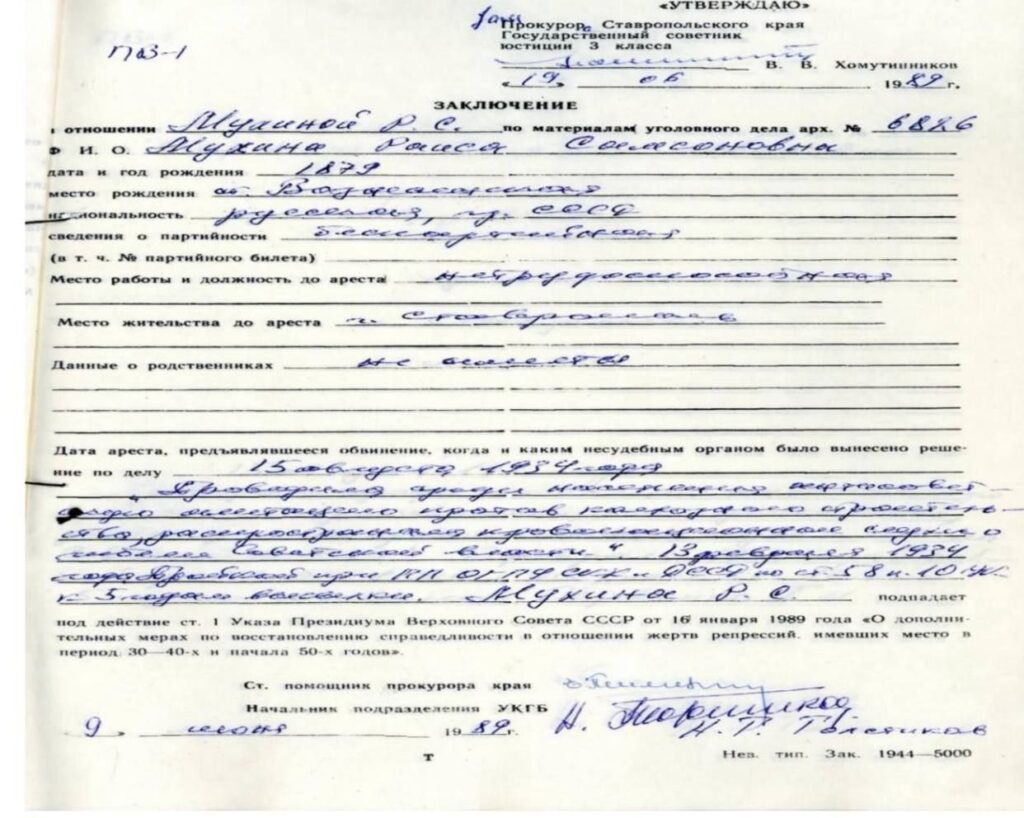 «УТВЕРЖДАЮ»
Зам
ПФЗ-1
Прокурор Ставропольского края
Государственный советник
юстиции 3 класса
В. В. Хомутинников
«19» 06 1989 г.
ЗАКЛЮЧЕНИЕ
отношении Мухиной Р. С. по материалам уголовного дела арх. № 6826
Ф И. О. Мухина Раиса Самсоновна
дата и год рождения 1879
место рождения
национальность русская, гр. СССР
сведения о партийности беспартийная
(в т. ч. № партийного билета)
Место работы и должность до ареста нетрудоспособная
Место жительства до ареста г. Ставрополь
Данные о родственниках не имеется
Дата ареста, предъявлявшееся обвинение, когда и каким несудебным органом было вынесено реше-
ние по делу 15 августа 1934 года
„ Проводила среди населения антисовет-
агитацию против колхозного строитель-
ства, распространяла провокационные слухи о
гибели Советской власти ". 13 февраля 1934
года Тройкой при ПП ОГПУ СКК и ДССР по ст. 58 п. 10 УК
к 3 годам высылки. Мухина Р. С. подпадает
под действие ст. 1 Указа Президиума Верховного Совета СССР от 16 января 1989 года «О дополни-
тельных мерах по восстановлению справедливости в отношении жертв репрессий, имевших место в
период 30—40-х и начала 50-х годов».
Ст. помощник прокурора края
Начальник подразделения УКГБ
Н. Т. Толстиков
9 июня 1989 г.
Т
Нев. тип. Зак. 1944—5000